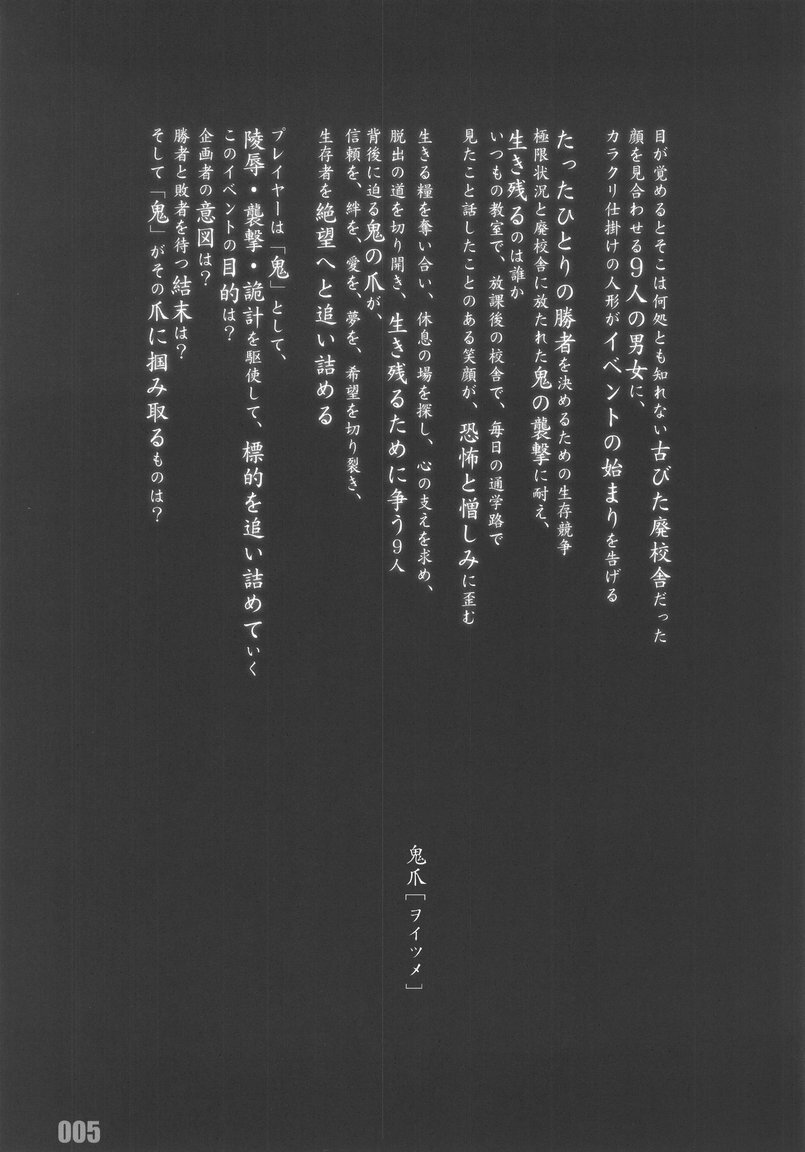 目が覚めるとそこは何処とも知れない古びた廃校舎だった
顔を見合わせる9人の男女に、
カラクリ仕掛けの人形がイベントの始まりを告げる
たったひとりの勝者を決めるための生存競争
極限状況と廃校舎に放たれた鬼の襲撃に耐え、
生き残るのは誰か
いつもの教室で、放課後の校舎で、毎日の通学路で
見たこと話したことのある笑顔が、恐怖と憎しみに歪む
生きる糧を奪い合い、休息の場を探し、心の支えを求め、
脱出の道を切り開き、生き残るために争う9人
背後に迫る鬼の爪が、
信頼を、絆を、愛を、夢を、希望を切り裂き、
生存者を絶望へと追い詰める
プレイヤーは「鬼」として、
陵辱・襲撃・詭計を駆使して、標的を追い詰めていく
このイベントの目的は？
企画者の意図は？
勝者と敗者を待つ結末は？
そして「鬼」がその爪に掴み取るものは？
鬼爪［ヲイツメ］
005